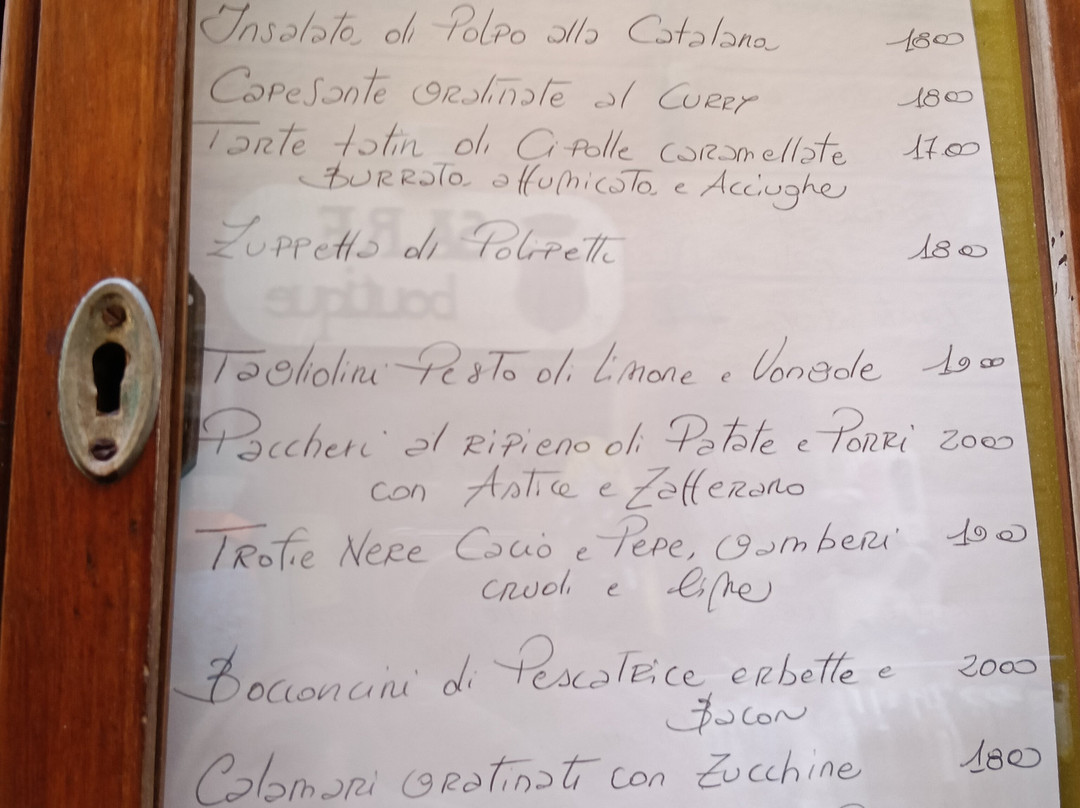 Insalata di Polpo alla Catalana 1800
Capesante gratinate al CURRY 1800
Tarte tatin di Cipolle caramellate 1700
BURRATA affumicata e Acciughe
Zuppetta di Polipetti 1800
Tagliolini Pesto di Limone e Vongole 1900
Paccheri al RIPIENO di Patate e PORRI 2000
con Astice e Zafferano
TROFIE NERE Cacio e Pepe, gamberi 1900
crudi e lime
Bocconcini di PescaTRice erbette e 2000
Bacon
Calamari gratinati con Zucchine 1800